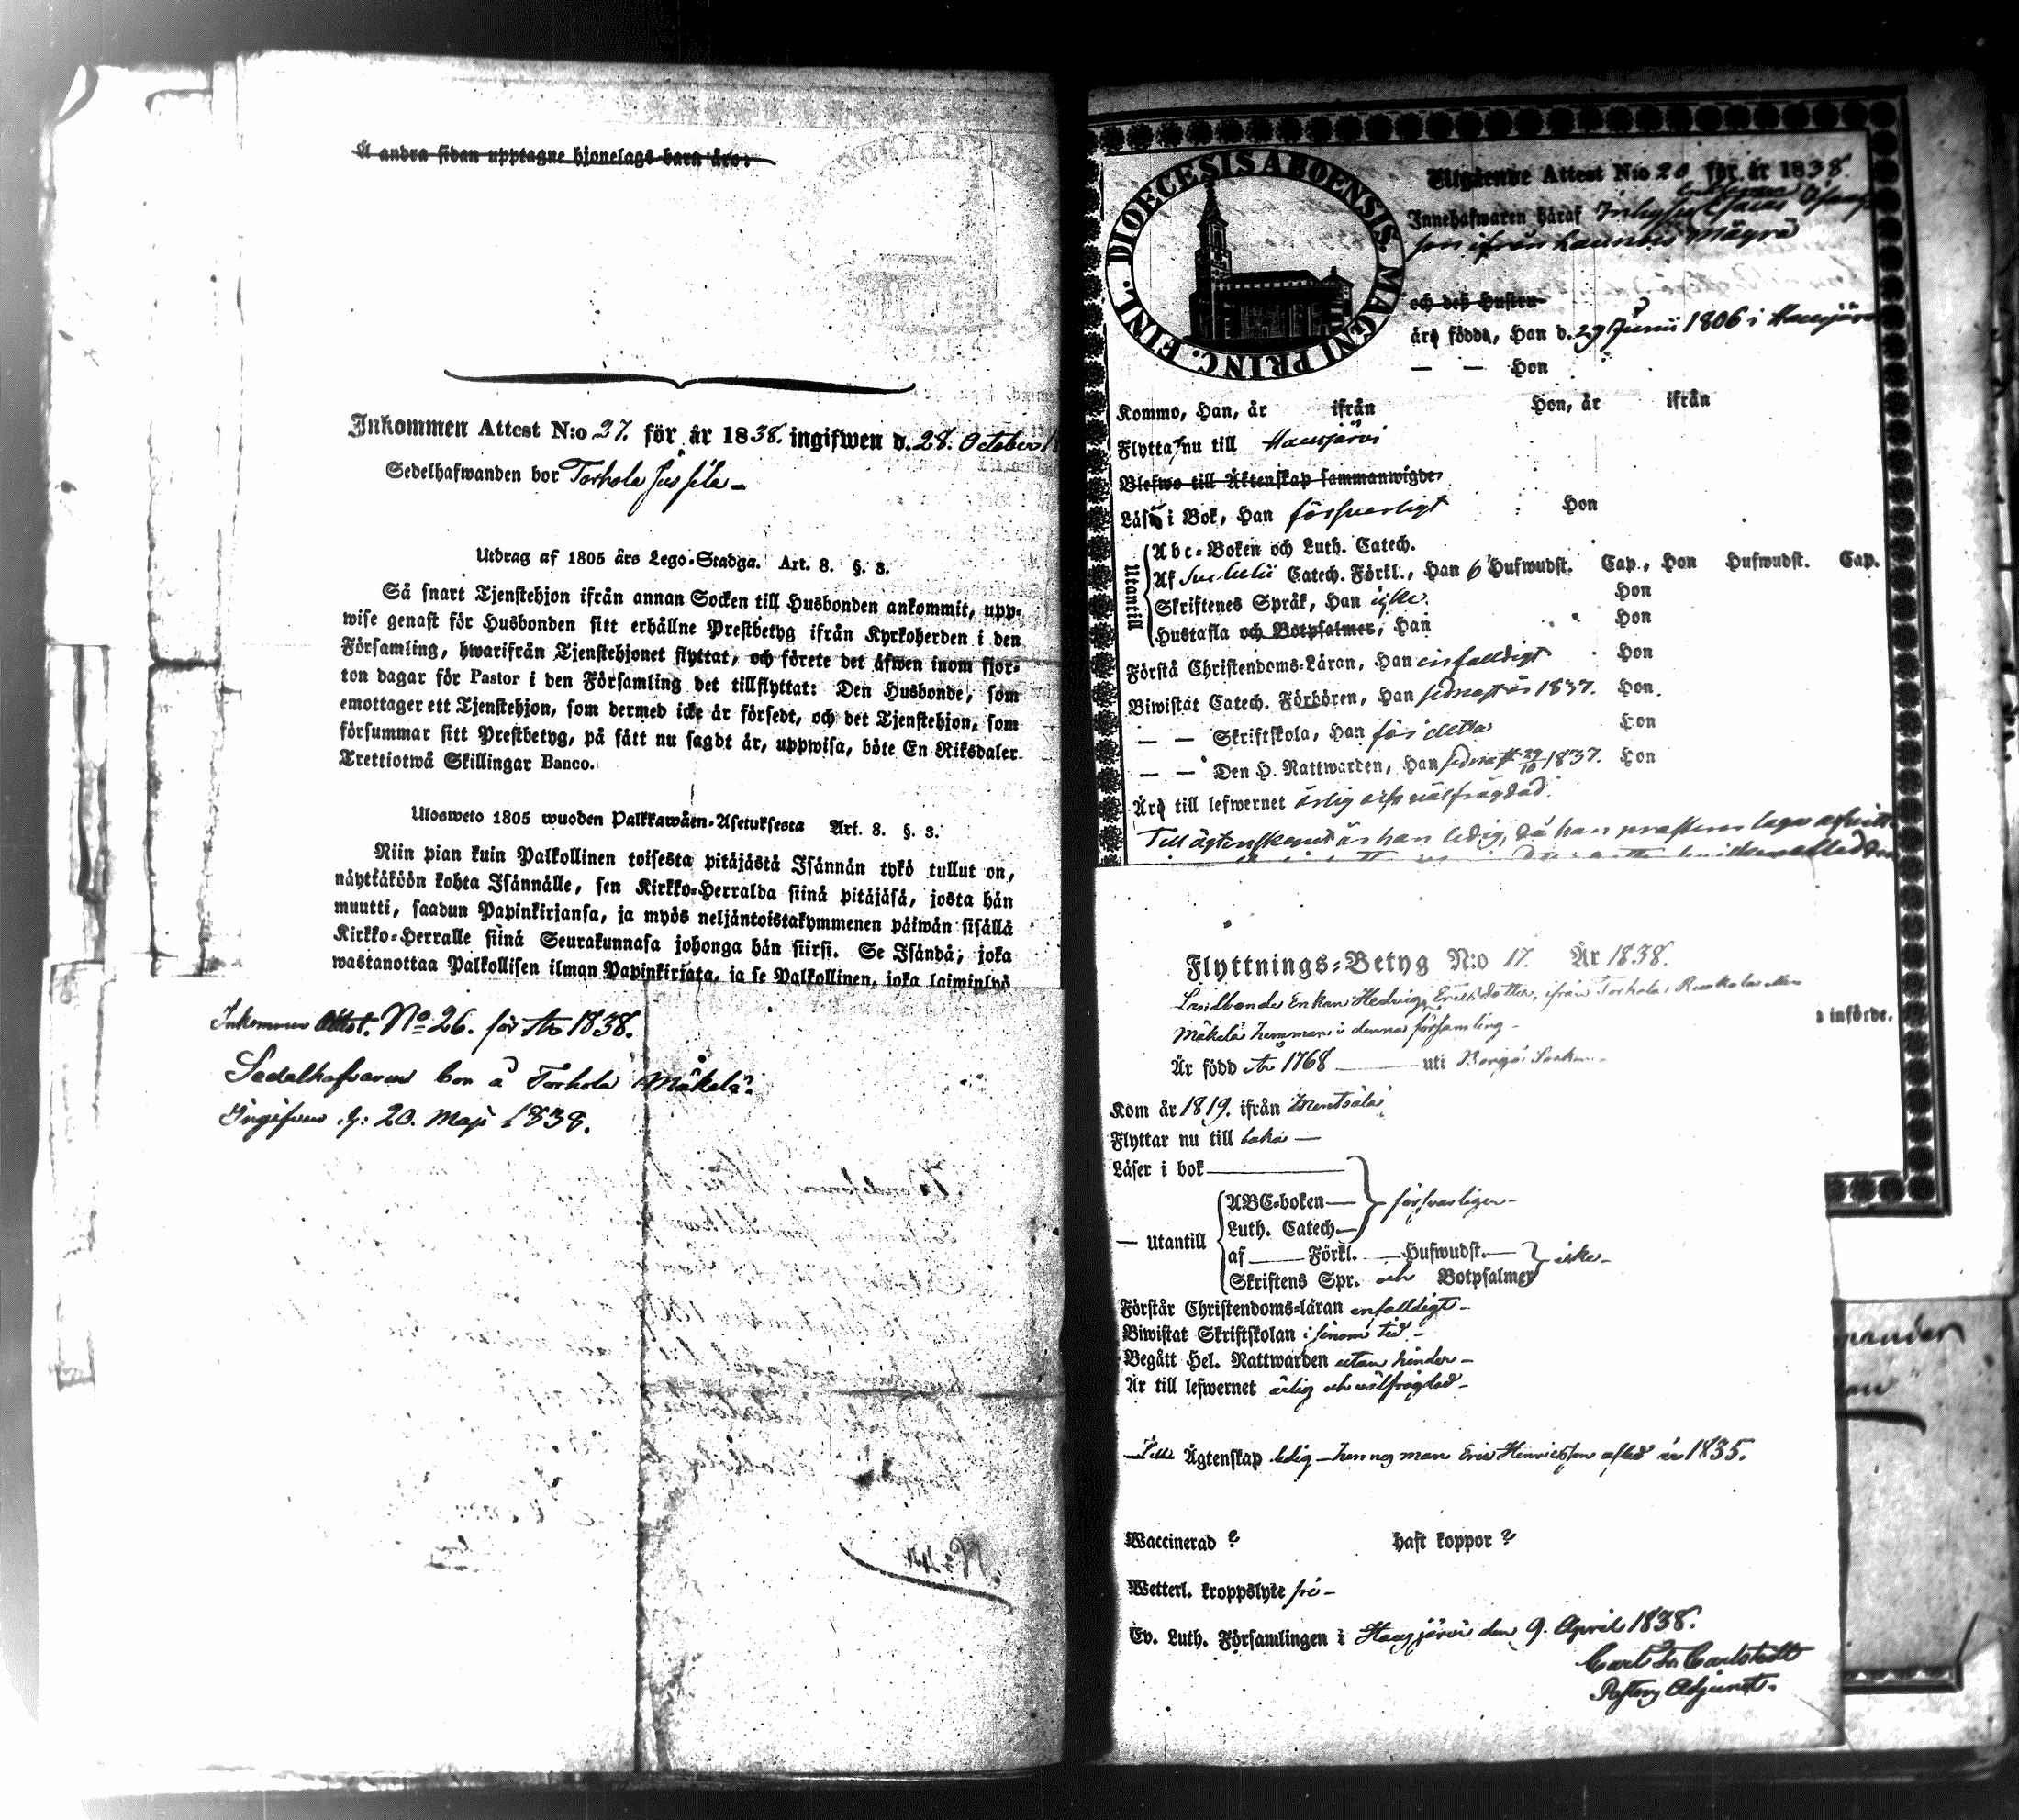 Å andra sidan upptagne hjonelags barn äro:
Inkommen Attest N:o 27. för år 1838. ingifwen d. 28. October
Sedelhafwanden bor Torhola Jussila
Utdrag af 1805 års Lego-Stadga. Art. 8. §. 3.
Så snart Tjenstehjon ifrån annan Socken till Husbonden ankommit, upp-
wise genast för Husbonden sitt erhållne Prestbetyg ifrån Kyrkoherden i den
Församling, hwarifrån Tjenstehjonet flyttat, och förete det äfwen inom fjor-
ton dagar för Pastor i den Församling det tillflyttat: Den Husbonde, som
emottager ett Tjenstehjon, som dermed icke är försedt, och det Tjenstehjon, som
försummar sitt Prestbetyg, på sätt nu sagdt är, uppwisa, böte En Riksdaler
Trettiotwå Skillingar Banco.
Ulosweto 1805 wuoden Palkkawäen-Asetuksesta Art. 8. §. 3.
Niin pian kuin Palkollinen toisesta pitäjästä Isännän tykö tullut on,
näyttäköön kohta Isännälle, sen Kirkko-Herralda siinä pitäjäsä, josta hän
muutti, saadun Papinkirjansa, ja myös neljäntoistakymmenen päiwän sisällä
Kirkko-Herralle siinä Seurakunnasa johonga hän siirsi. Se Isändä, joka
wastanottaa Palkollisen ilman Papinkirjata, ja se Palkollinen, joka laiminlyö
Inkommen Attest. No 26. för År 1838.
Sedelhafvaren bor å Torhola Mäkelä.
Ingifven d: 20. Maji 1838.
DIOECESIS ABOENSIS. MAGNI PRINC. FINL.
Utgående Attest N:o 20 för år 1838.
Innehafwaren häraf Inhyses Enklingen
son ifrån Launois Mäyrä
och deß Hustru
äro födde, Han d. 29 Junii 1806 i Hausjärvi
— — Hon
Kommo, Han, år ifrån Hon, år ifrån
Flyttar nu till Hausjärvi
Blefwo till Äktenskap sammanwigde
Läser i Bok, Han försvarligt Hon
Utantill
Abc-Boken och Luth. Catech.
Af Svebelii Catech. Förkl., Han 6 Hufwudst. Cap., Hon Hufwudst. Cap.
Skriftenes Språk, Han icke. Hon
Hustafla och Botpsalmer, Han Hon
Förstå Christendoms-Läran, Han enfaldigt Hon
Biwistat Catech. Förhören, Han sednast år 1837. Hon.
— — Skriftskola, Han för detta Hon
— — Den H. Nattwarden, Han sednast 29/10 1837. Hon
Äro till lefwernet ärlig och välfrägdad.
Till ägtenskap är han ledig, då han
införde.
Flyttnings-Betyg N:o 17. År 1838.
Landbonde Enkan Hedvig Ericsdotter, ifrån Torhola
Mäkelä hemman i denna församling
Är född år 1768 uti Borgå Socken
Kom år 1819. ifrån Mentsälä
Flyttar nu till baka
Läser i bok
— Utantill
ABC-boken
Luth. Catech.
försvarligen
af Förkl. Hufwudst.
Skriftens Spr. och Botpsalmer
icke
Förstår Christendoms-läran enfaldigt
Biwistat Skriftskolan i sinom tid
Begått Hel. Nattwarden utan hinder
Är till lefwernet ärlig och välfrägdad
Till Ägtenskap ledig hennes man Eric Henricsson afled år 1835.
Waccinerad ? haft koppor ?
Wetterl. kroppslyte fri
Ev. Luth. Församlingen i Hausjärvi den 9. April 1838.
Carl Fr. Carlstedt
Pastors Adjunct.